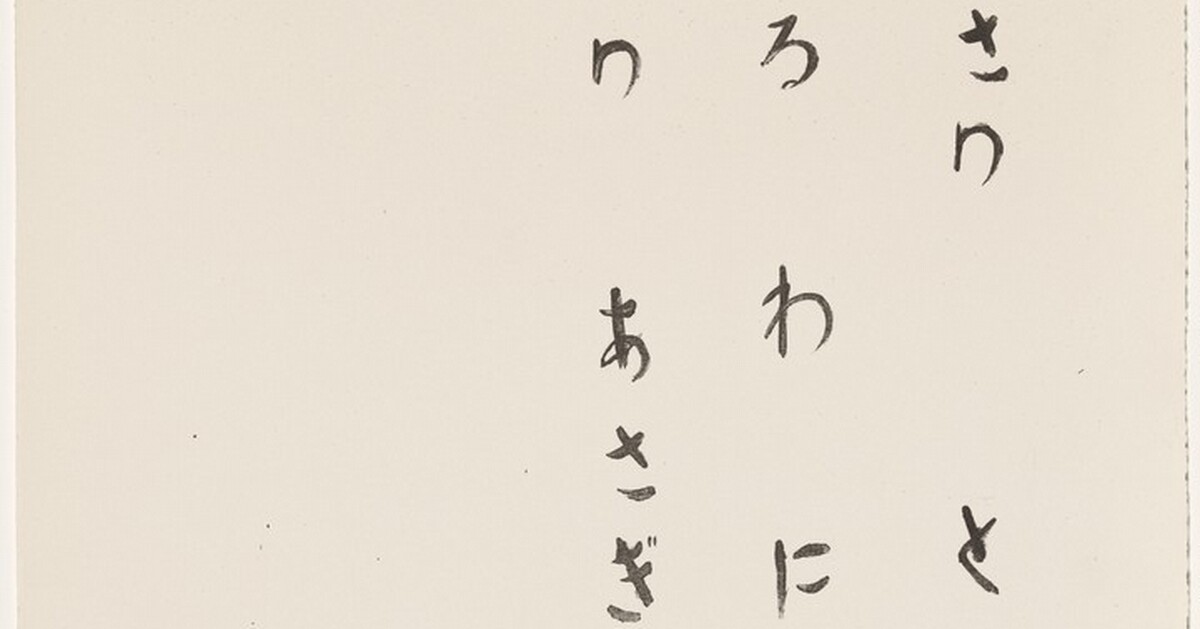 さり と
る わ に
り あさぎ